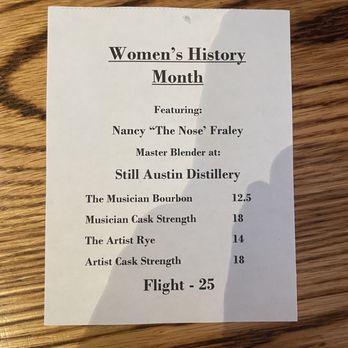 Women's History
Month
Featuring:
Nancy "The Nose' Fraley
Master Blender at:
Still Austin Distillery
The Musician Bourbon 12.5
Musician Cask Strength 18
The Artist Rye 14
Artist Cask Strength 18
Flight - 25